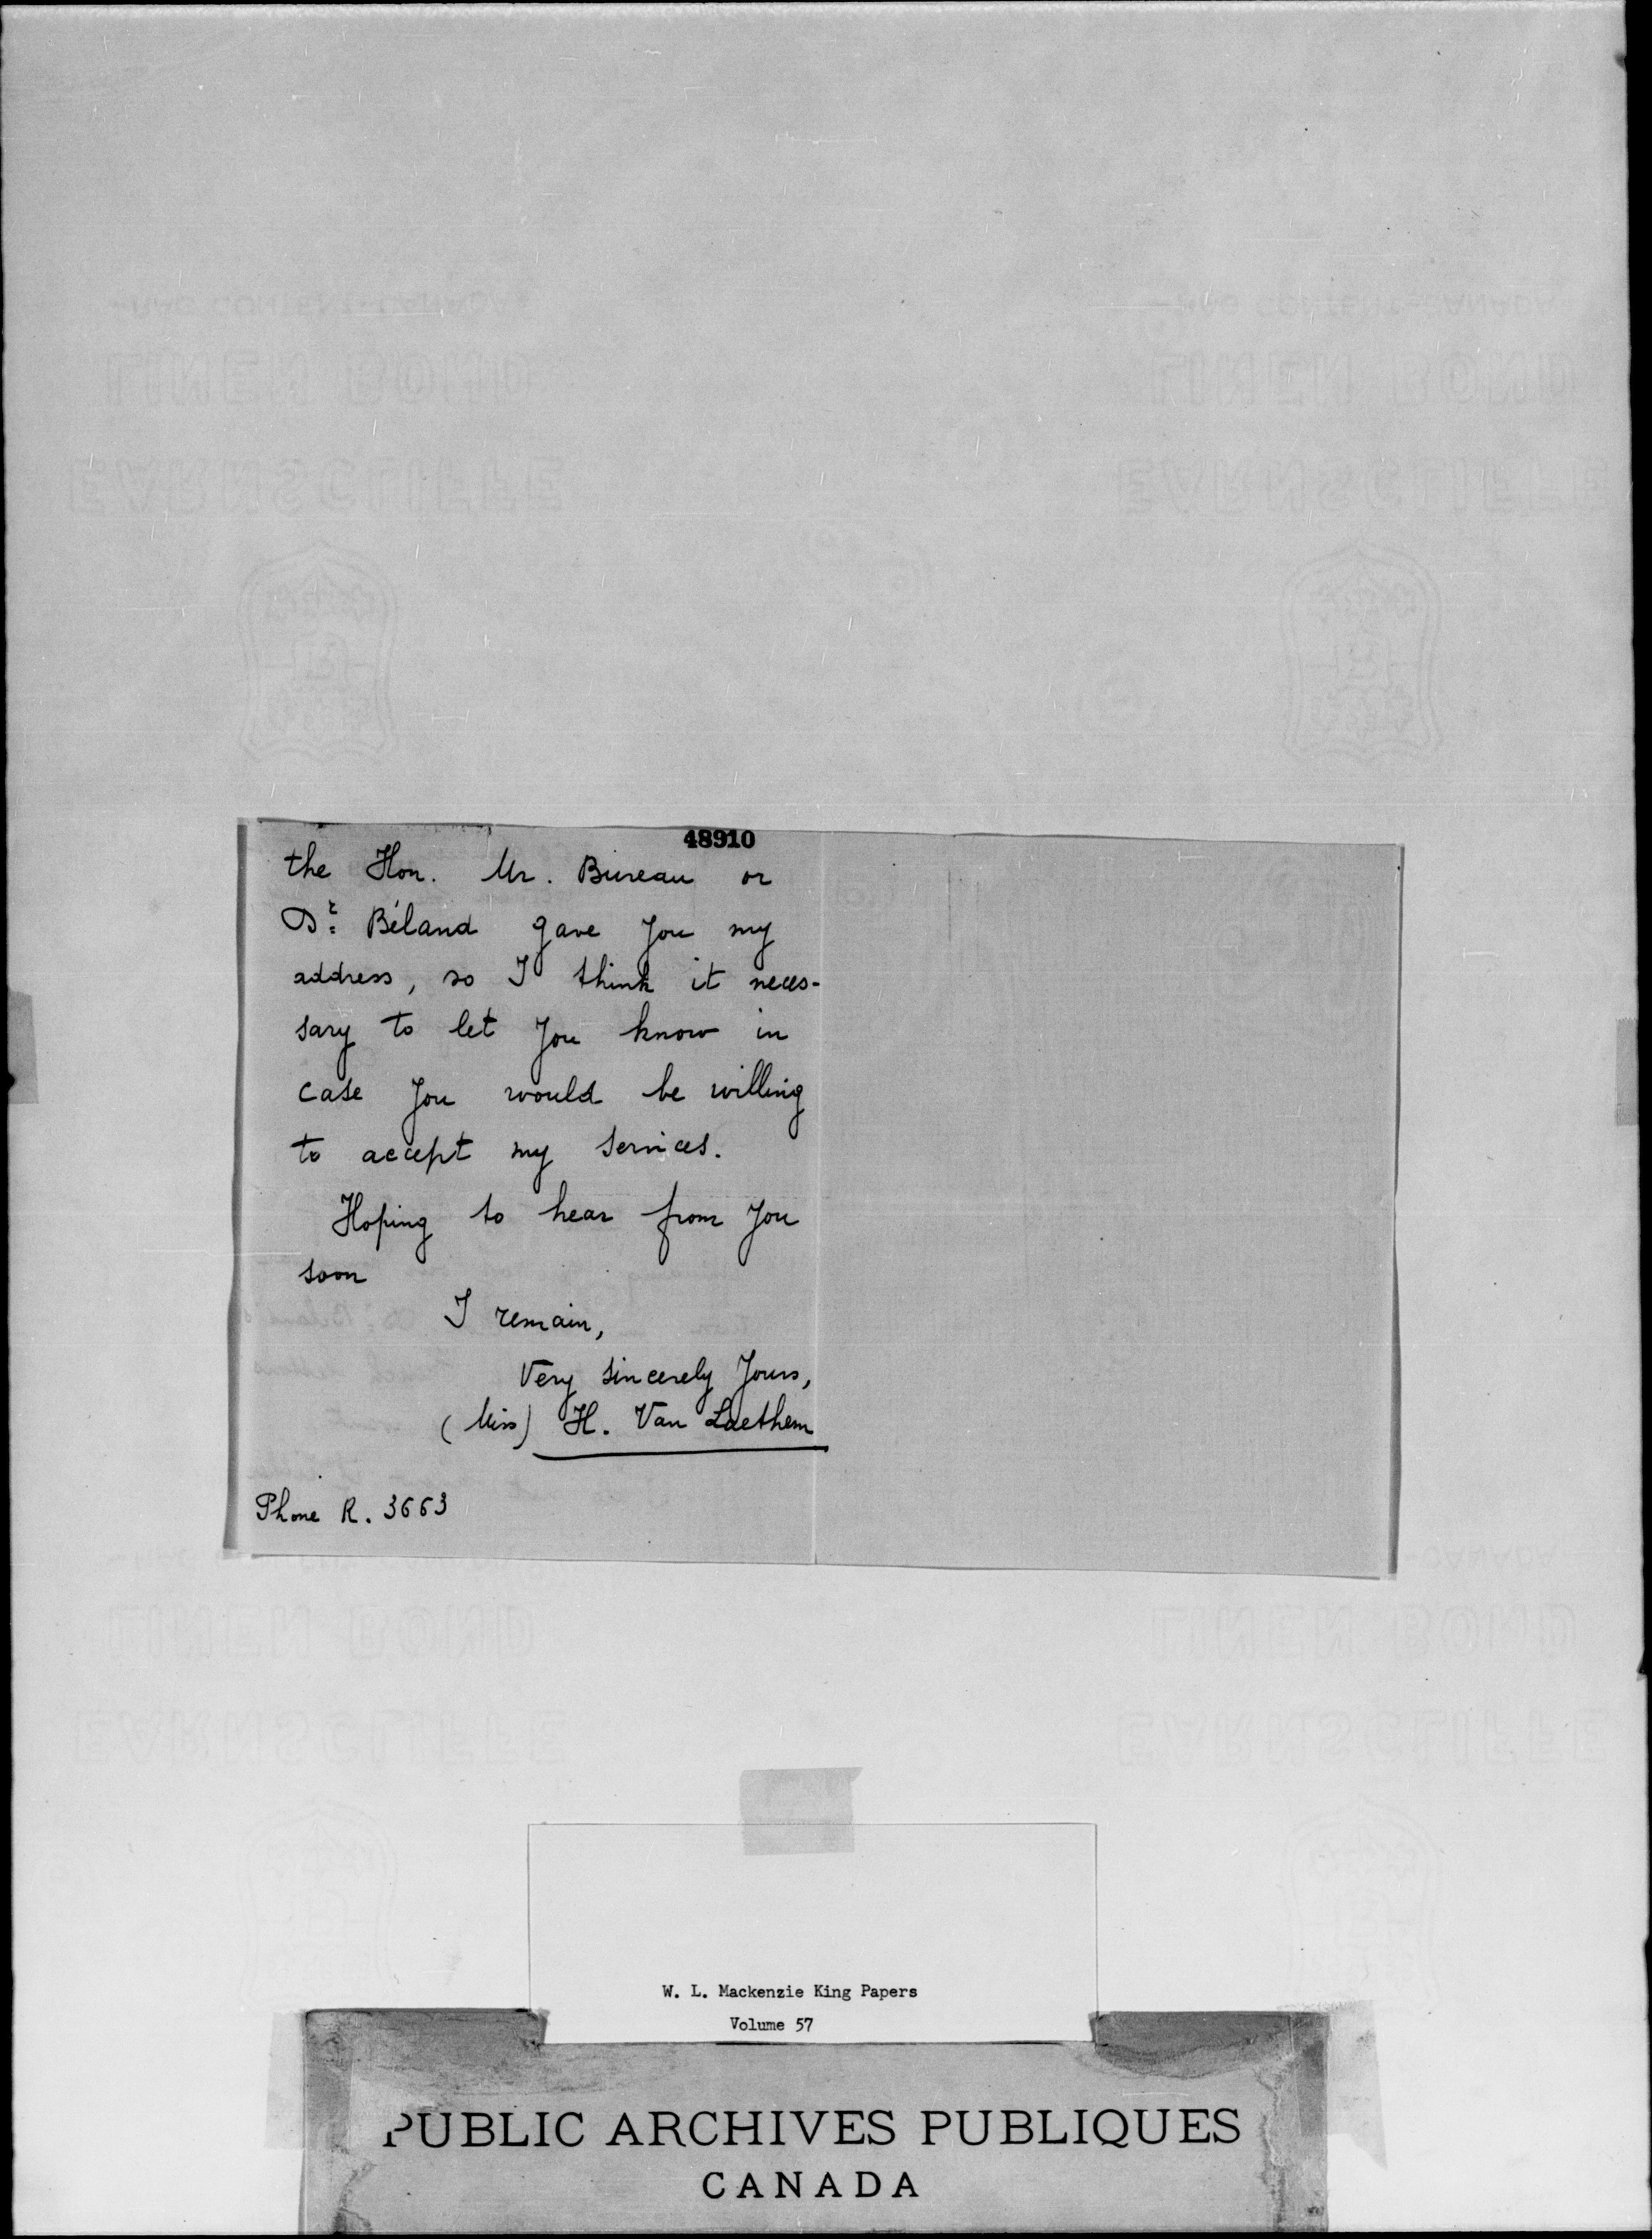 48910
the Hon. Mr. Bureau or
Dr. Béland gave you my
address, so I think it neces-
sary to let you know in
case you would be willing
to accept my services.
Hoping to hear from you
soon
I remain,
Very sincerely Yours,
(Miss) H. Van Laethem
Phone R. 3663
W. L. Mackenzie King Papers
Volume 57
PUBLIC ARCHIVES PUBLIQUES
CANADA